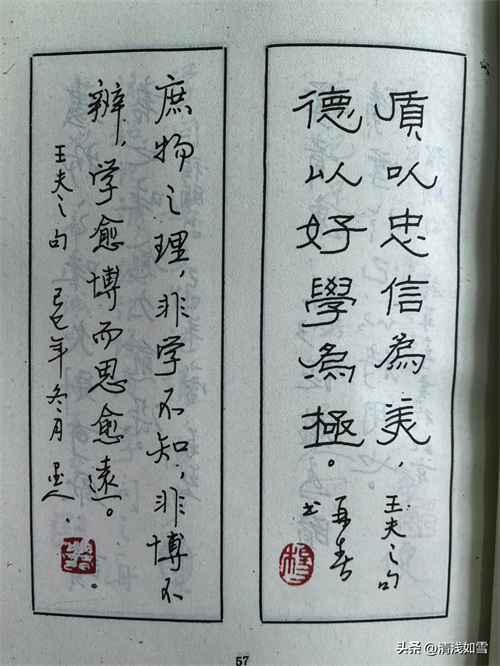 质以忠信為美，
德以好學為極。
王夫之句
再春
书
程
庶物之理，非学不知，非博不
辨，学愈博而思愈遠。
王夫之句 己巳年冬月 墨人.
57
头条 @清浅如雪